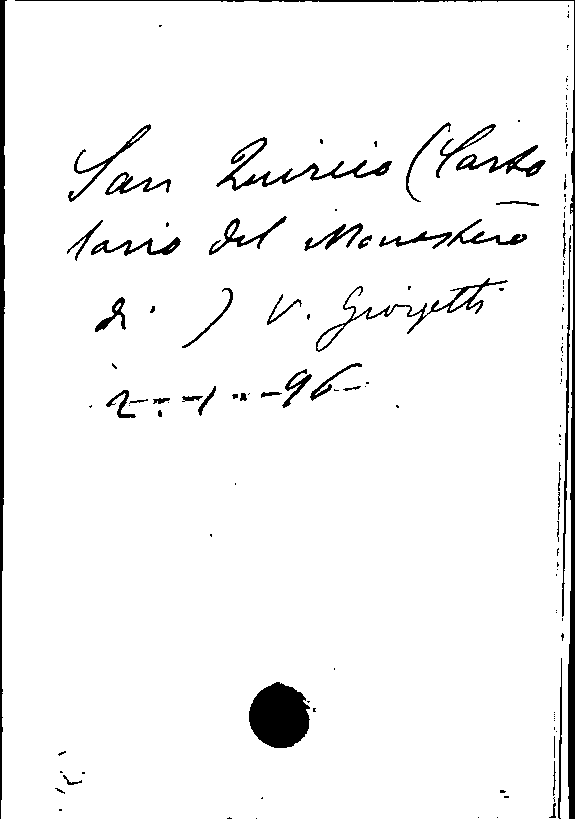 San Quirico (Carto
lario del Monastero
di ) V. Giorgetti
2 - 1 - 96